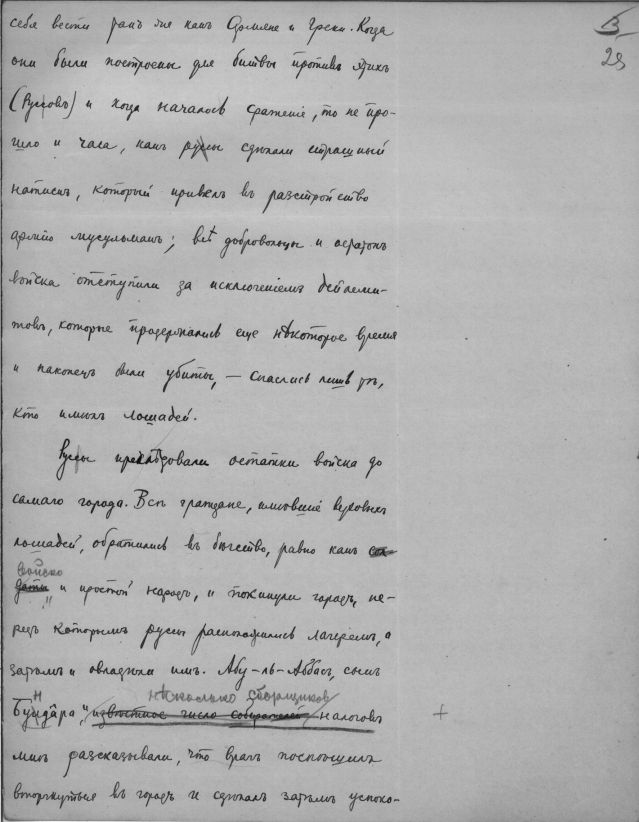 3
29
себя вести такъ же какъ Армяне и Греки. Когда
они были построены для битвы противъ этихъ
(Руссовъ) и когда началось сраженіе, то не про-
шло и часа, какъ русы сдѣлали страшный
натискъ, который привелъ въ разстройство
армію мусульманъ; всѣ добровольцы и
войска отступили за исключеніемъ Дейлеми-
товъ, которые продержались еще нѣкоторое время
и наконецъ были убиты, — спаслись лишь тѣ,
кто имѣлъ лошадей.
Русы преслѣдовали остатки войска до
самаго города. Всѣ граждане, имѣвшіе верховыхъ
лошадей, обратились въ бѣгство, равно какъ сол-
войско
даты и простой народъ, и покинули городъ, пе-
редъ которымъ русы расположились лагеремъ, а
затѣмъ и овладѣли имъ. Абу-ль-Аббасъ, сынъ
нѣсколько сборщиковъ
Бундâра, "извѣстное число собирателей налоговъ
+
мнѣ разсказывали, что врагъ поспѣшилъ
вторгнуться въ городъ и сдѣлалъ затѣмъ успоко-